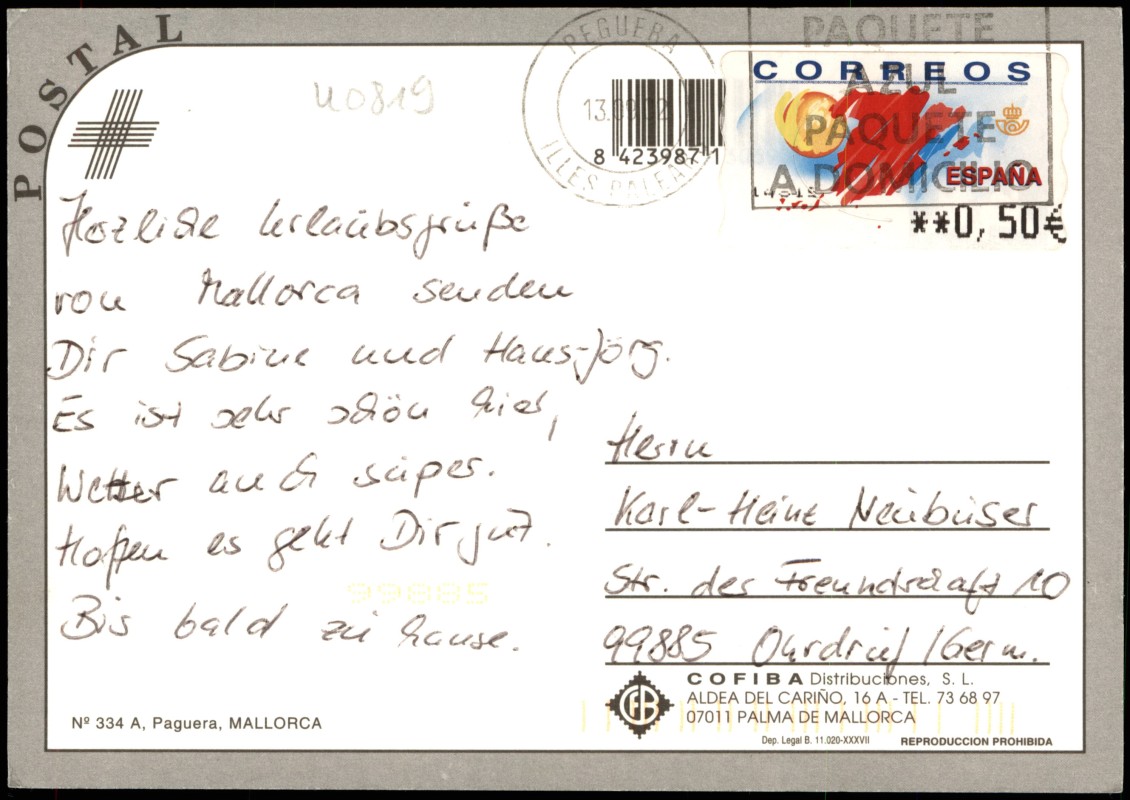 POSTAL
U0819
PEGUERA
13.09.02
ILLES BALEARS
8 423987 1
PAQUETE
AZUL
PAQUETE
A DOMICILIO
CORREOS
ESPAÑA
**0,50€
Herzliche Urlaubsgrüße
von Mallorca senden
Dir Sabine und Hans-Jörg.
Es ist sehr schön hier,
Wetter auch super.
Hoffen es geht Dir gut.
Bis bald zu hause.
99885
Herrn
Karl-Heinz Neubüser
Str. der Freundschaft 10
99885 Ohrdruf/Germ.
COFIBA Distribuciones, S. L.
ALDEA DEL CARIÑO, 16 A - TEL. 73 68 97
07011 PALMA DE MALLORCA
CFB
Nº 334 A, Paguera, MALLORCA
Dep. Legal B. 11.020-XXXVII
REPRODUCCION PROHIBIDA